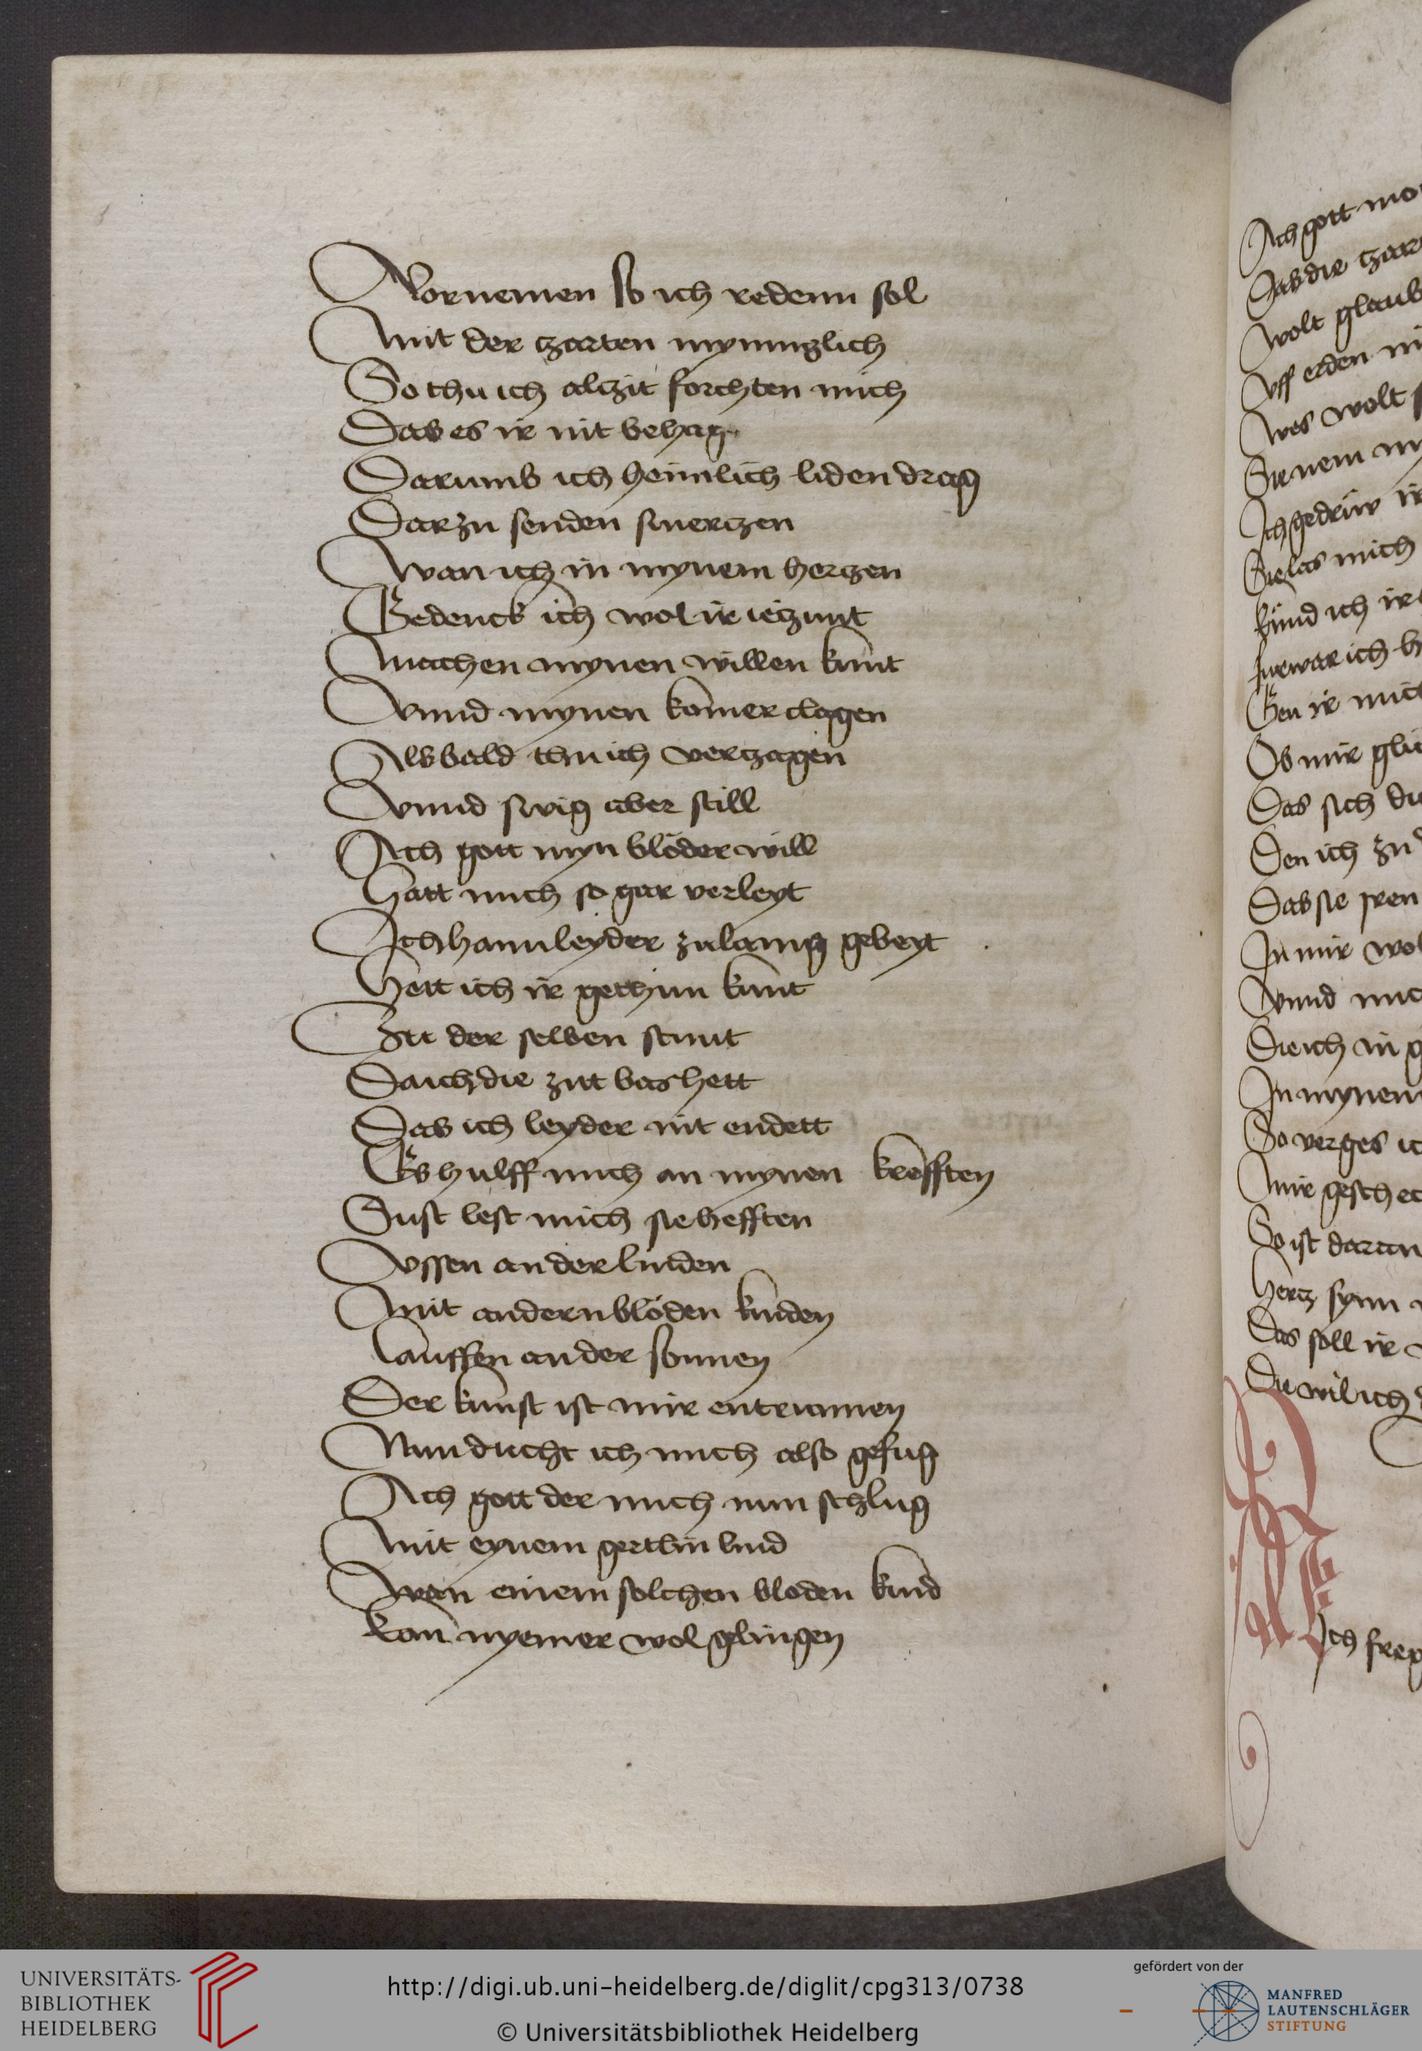 Vornemen so ich redenn sol
Mit der zarten mynniglich
So thu ich alzit forchten mich
Das es ir nit behag
Darumb ich heimlich liden drag
Darzu senden smerczen
Wan ich in mynem herczen
Gedenck ich wol ir ieczunt
Machen mynen willen kunt
Vnnd mynen komer clagen
Als bald thu ich verczagen
Vnnd swig aber still
Ach gott myn blöder will
Hatt mich so gar verleyt
Ich hann leyder zu lanng gebeyt
Hett ich ir gethun kunt
Zu der selben stunt
Da ich die zitt bas hett
Das ich leyder nit endett
Es hulff mich an mynen krefften
Sust lest mich sie hefften
Vssen an der linden
Mit andern blöden kinden
Lauffen an der sonnen
Der kunst ist mir entrunnen
Nun ducht ich mich also gefug
Ach gott der mich nun schlug
Mit eynem gertlin lind
Wan einem solchen bloden kind
Kan nyemer wol glingen
Ach gott
Das die
Wolt
Vff erden
Wes wolt
Sie nem
Ich gedruw
Sie las mich
Kund ich ir
Fürwar ich
Gen ir
Ob mir
Das sich
Den ich zu
Das sie
In mir
Vnnd
Die ich in
In mynem
So verges
Mir
So ist daran
Hercz synn
Das soll ir
Die wil ich
Ich
UNIVERSITÄTS-
BIBLIOTHEK
HEIDELBERG
http://digi.ub.uni-heidelberg.de/diglit/cpg313/0738
© Universitätsbibliothek Heidelberg
gefördert von der
MANFRED
LAUTENSCHLÄGER
STIFTUNG